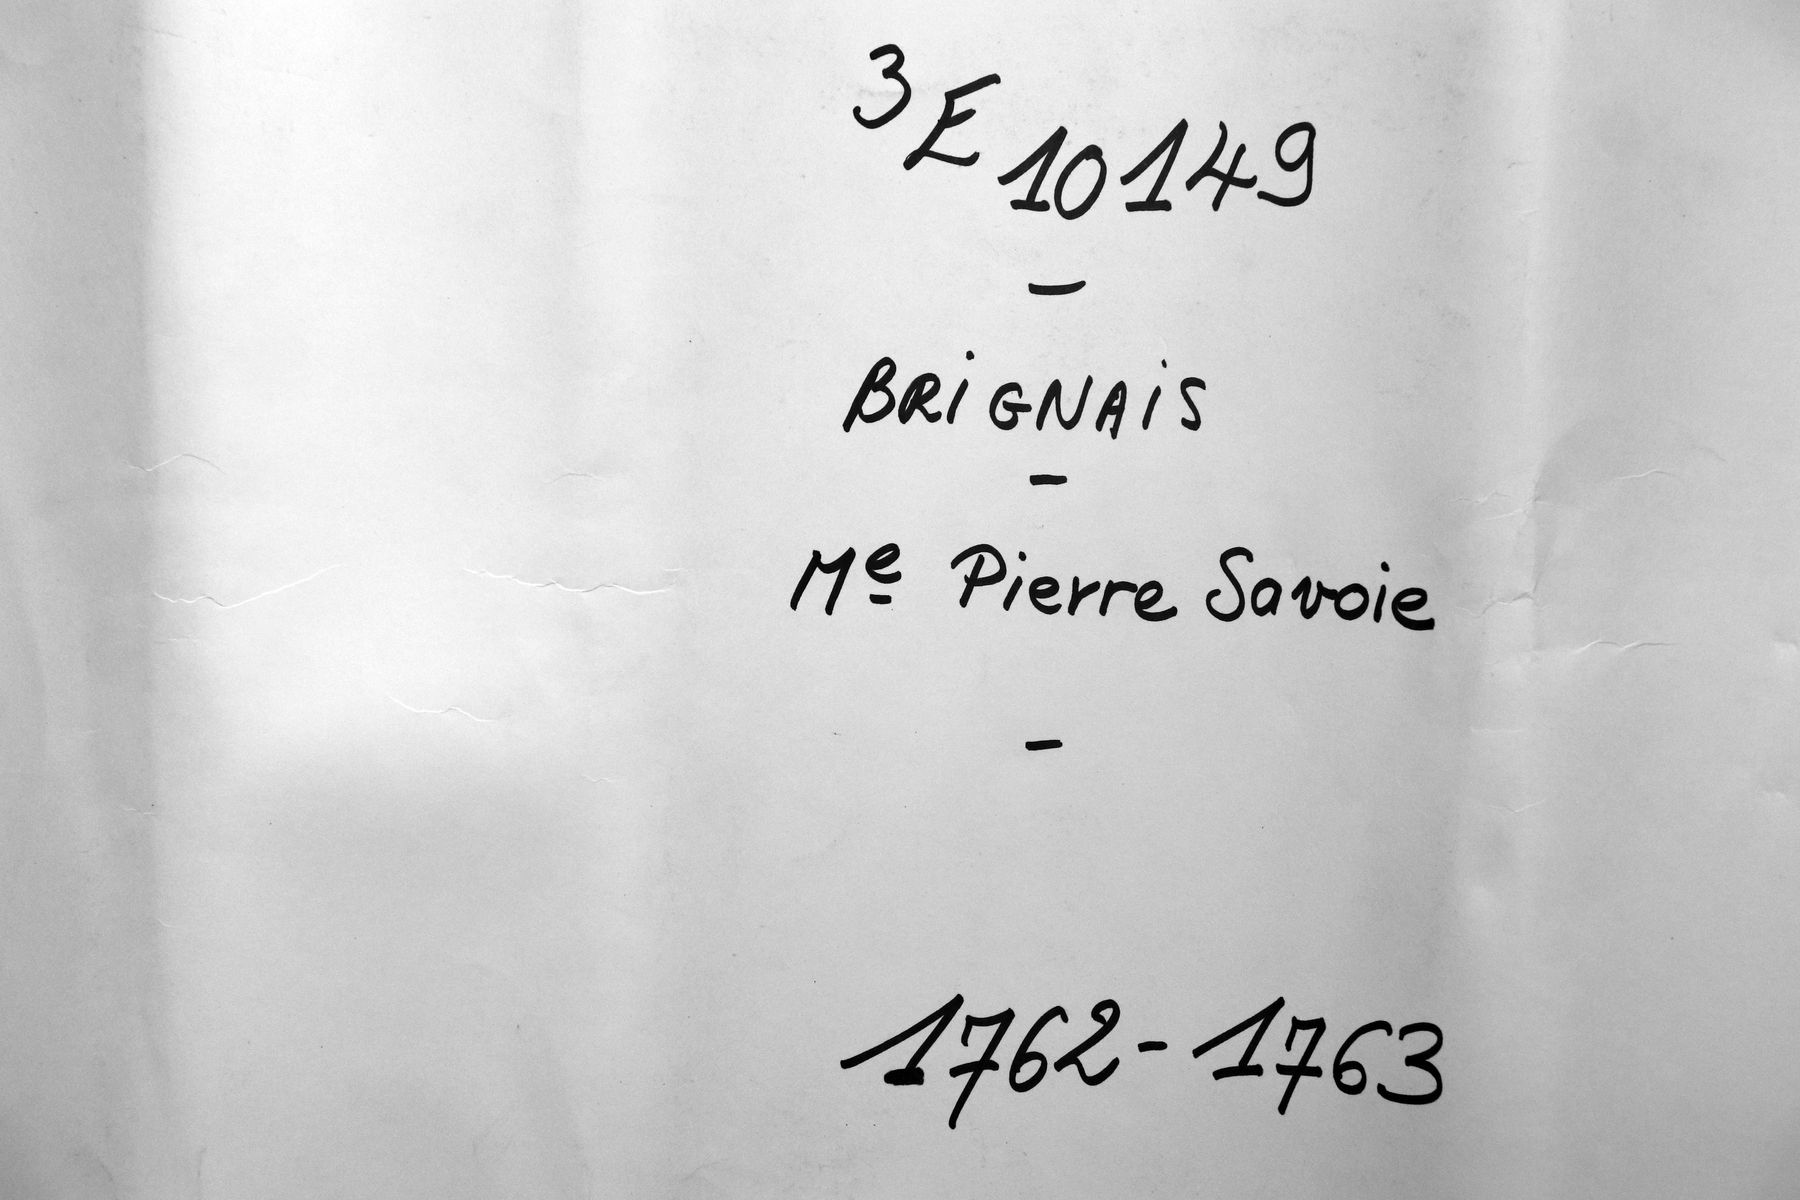 3E 10149
–
BRIGNAIS
–
Me Pierre Savoie
–
1762-1763